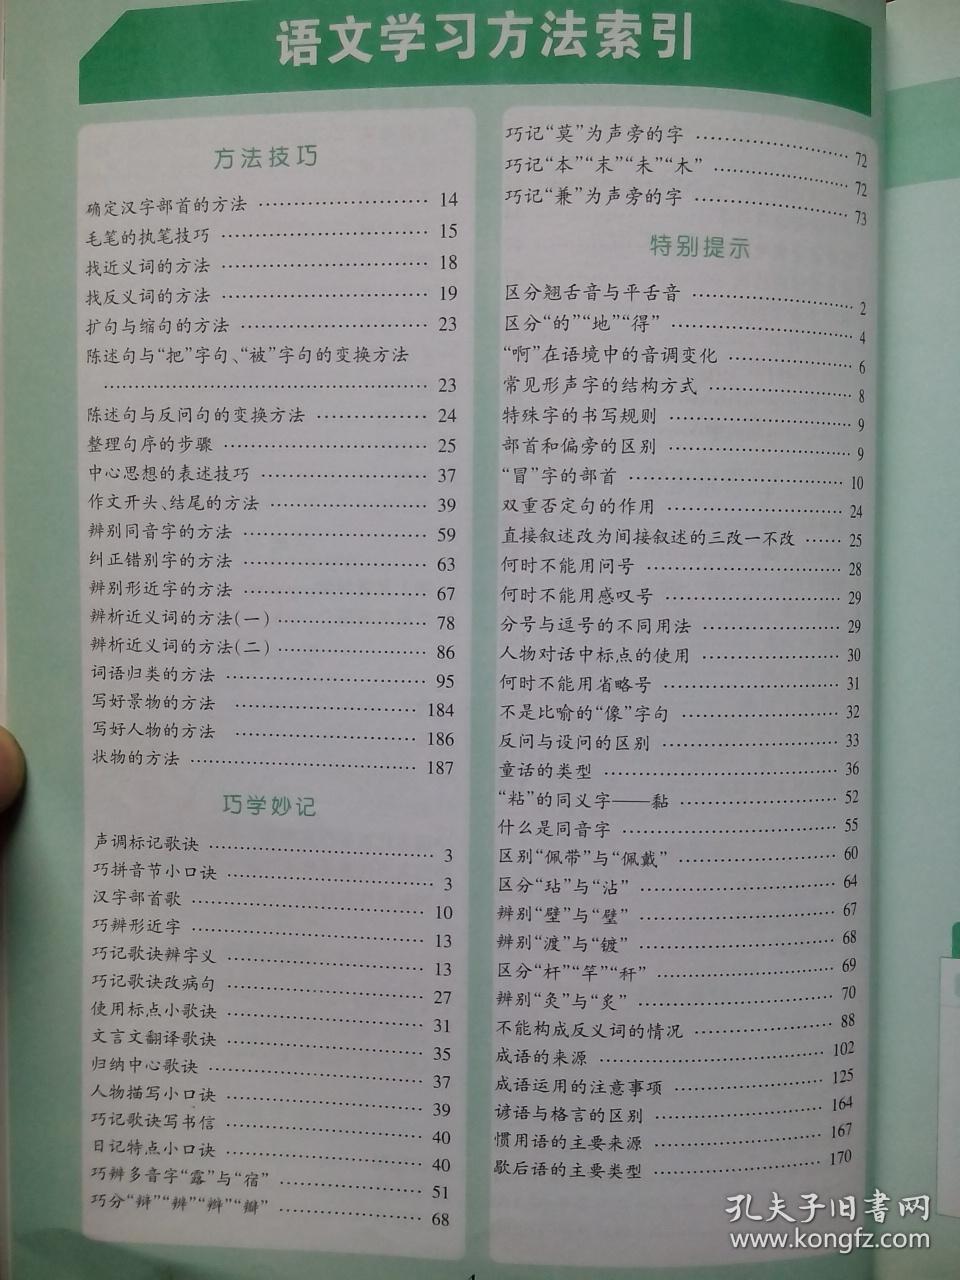 语文学习方法索引
方法技巧
确定汉字部首的方法 …………………… 14
毛笔的执笔技巧 …………………… 15
找近义词的方法 …………………… 18
找反义词的方法 …………………… 19
扩句与缩句的方法 …………………… 23
陈述句与“把”字句、“被”字句的变换方法
…………………… 23
陈述句与反问句的变换方法 …………………… 24
整理句序的步骤 …………………… 25
中心思想的表述技巧 …………………… 37
作文开头、结尾的方法 …………………… 39
辨别同音字的方法 …………………… 59
纠正错别字的方法 …………………… 63
辨别形近字的方法 …………………… 67
辨析近义词的方法(一) …………………… 78
辨析近义词的方法(二) …………………… 86
词语归类的方法 …………………… 95
写好景物的方法 …………………… 184
写好人物的方法 …………………… 186
状物的方法 …………………… 187
巧学妙记
声调标记歌诀 …………………… 3
巧拼音节小口诀 …………………… 3
汉字部首歌 …………………… 10
巧辨形近字 …………………… 13
巧记歌诀辨字义 …………………… 13
巧记歌诀改病句 …………………… 27
使用标点小歌诀 …………………… 31
文言文翻译歌诀 …………………… 35
归纳中心歌诀 …………………… 37
人物描写小口诀 …………………… 39
巧记歌诀写书信 …………………… 40
日记特点小口诀 …………………… 40
巧辨多音字“露”与“宿” …………………… 51
巧分“辩”“辨”“辫”“瓣” …………………… 68
巧记“莫”为声旁的字 …………………… 72
巧记“本”“末”“未”“木” …………………… 72
巧记“兼”为声旁的字 …………………… 73
特别提示
区分翘舌音与平舌音 …………………… 2
区分“的”“地”“得” …………………… 4
“啊”在语境中的音调变化 …………………… 6
常见形声字的结构方式 …………………… 8
特殊字的书写规则 …………………… 9
部首和偏旁的区别 …………………… 9
“冒”字的部首 …………………… 10
双重否定句的作用 …………………… 24
直接叙述改为间接叙述的三改一不改 …… 25
何时不能用问号 …………………… 28
何时不能用感叹号 …………………… 29
分号与逗号的不同用法 …………………… 29
人物对话中标点的使用 …………………… 30
何时不能用省略号 …………………… 31
不是比喻的“像”字句 …………………… 32
反问与设问的区别 …………………… 33
童话的类型 …………………… 36
“粘”的同义字——黏 …………………… 52
什么是同音字 …………………… 55
区别“佩带”与“佩戴” …………………… 60
区分“玷”与“沾” …………………… 64
辨别“壁”与“璧” …………………… 67
辨别“渡”与“镀” …………………… 68
区分“杆”“竿”“秆” …………………… 69
辨别“灸”与“炙” …………………… 70
不能构成反义词的情况 …………………… 88
成语的来源 …………………… 102
成语运用的注意事项 …………………… 125
谚语与格言的区别 …………………… 164
惯用语的主要来源 …………………… 167
歇后语的主要类型 …………………… 170
孔夫子旧书网
www.kongfz.com